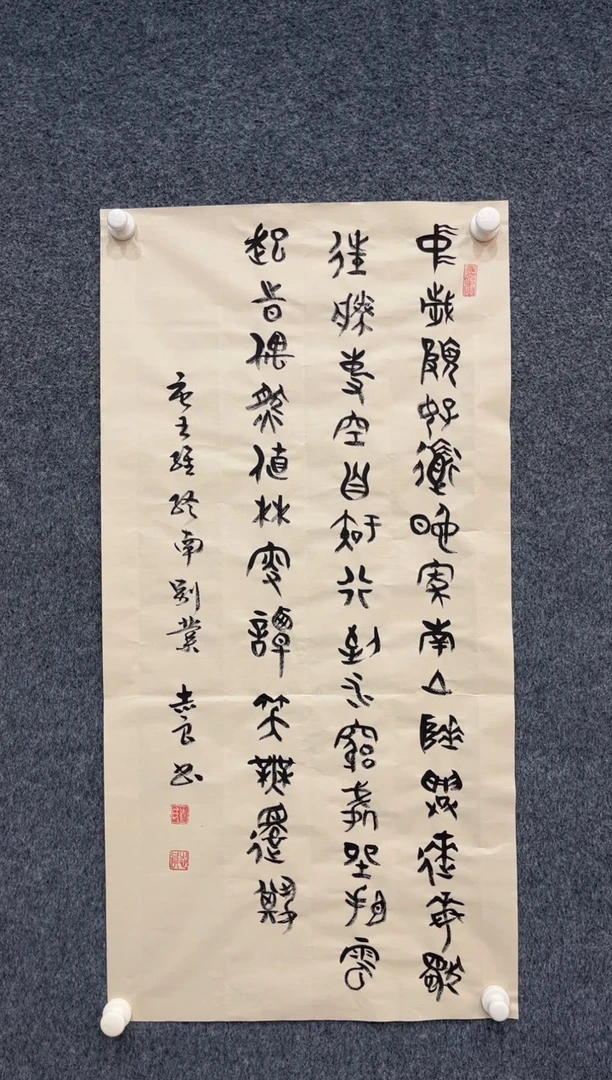 中歲頗好道晚家南山陲興來每獨
往勝事空自知行到水窮處坐看雲
起時偶然值林叟譚笑無還期
唐王維終南別業 志良書